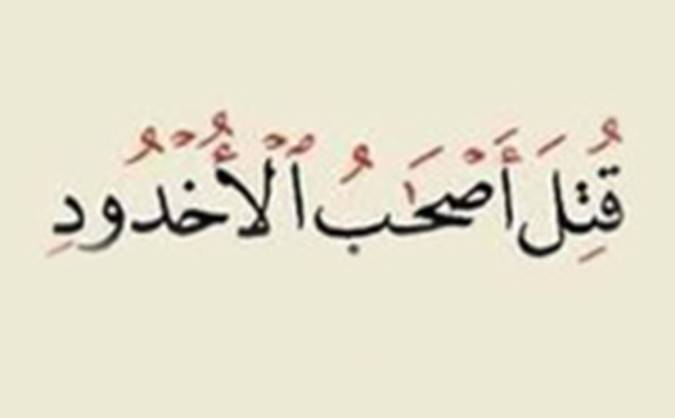 قُتِلَ أَصْحَـٰبُ ٱلْأُخْدُودِ